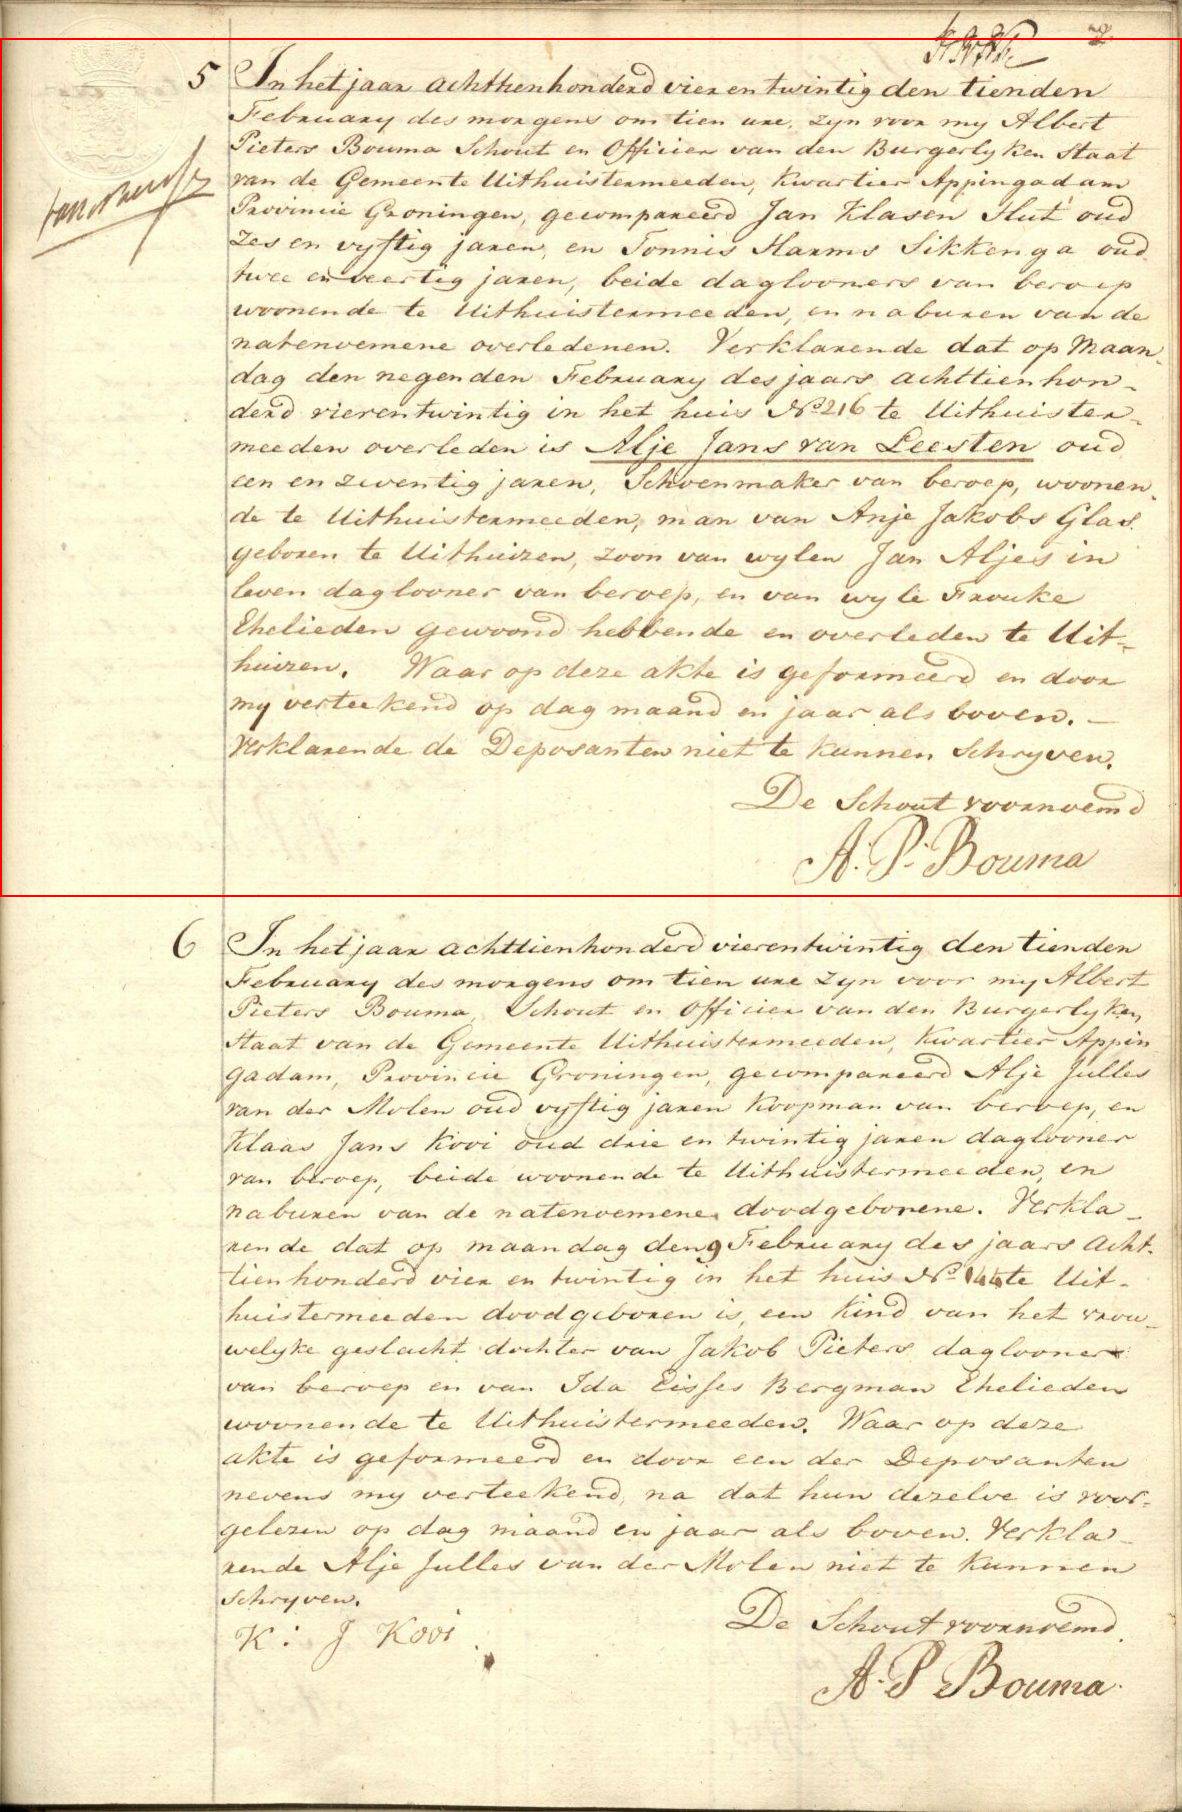 2
5 In het jaar achttienhonderd vier en twintig den tienden
February des morgens om tien ure, zyn voor my Albert
Pieters Bouma Schout en Officier van den Burgerlyken Staat
van de Gemeente Uithuistermeeden, Kwartier Appingadam
Provincie Groningen, gecompareerd Jan Klasen Slut oud
zes en vyftig jaren, en Tonnis Harms Sikkenga oud
twee en veertig jaren, beide daglooners van beroep
woonende te Uithuistermeeden, en naburen van de
natenoemene overledenen. Verklarende dat op Maan-
dag den negenden February des jaars achttienhon-
derd vierentwintig in het huis No 216 te Uithuister-
meeden overleden is Alje Jans van Leesten oud
een en zeventig jaren, Schoenmaker van beroep, woonen-
de te Uithuistermeeden, man van Anje Jakobs Glas
geboren te Uithuizen, zoon van wylen Jan Aljes in
leven daglooner van beroep, en van wyle Frouke
Ehelieden gewoond hebbende en overleden te Uit-
huizen. Waar op deze akte is geformeerd en door
my verteekend op dag maand en jaar als boven. -
Verklarende de Deposanten niet te kunnen Schryven.
De Schout voornoemd
A. P. Bouma
6 In het jaar achttienhonderd vierentwintig den tienden
February des morgens om tien ure zyn voor my Albert
Pieters Bouma, Schout en Officier van den Burgerlyken
Staat van de Gemeente Uithuistermeeden, Kwartier Appin
gadam, Provincie Groningen, gecompareerd Alje Julles
van der Molen oud vyftig jaren Koopman van beroep, en
Klaas Jans Kooi oud drie en twintig jaren daglooner
van beroep, beide woonende te Uithuistermeeden, en
naburen van de natenoemene doodgeborene. Verkla-
rende dat op maandag den 9 February des jaars acht-
tienhonderd vier en twintig in het huis No te Uit-
huistermeeden doodgeboren is, een Kind van het vrou-
welyke geslacht dochter van Jakob Pieters daglooner
van beroep en van Ida Eisses Bergman Ehelieden
woonende te Uithuistermeeden. Waar op deze
akte is geformeerd en door een der Deposanten
nevens my verteekend, na dat hun dezelve is voor-
gelezen op dag maand en jaar als boven. Verkla-
rende Alje Julles van der Molen niet te kunnen
Schryven.
De Schout voornoemd
K: J Kooi
A. P Bouma